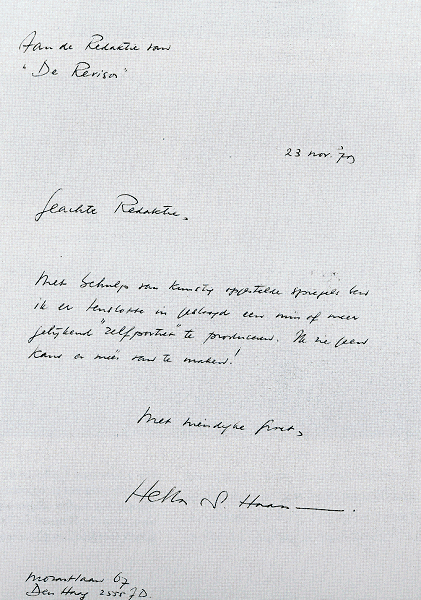 Aan de Redaktie van
"De Revisor"
23 nov. '79
Geachte Redaktie,
Met behulp van kunstig opgestelde spiegels ben
ik er tenslotte in geslaagd een min of meer
gelijkend "zelfportret" te produceren. Ik zie geen
kans er méér van te maken!
Met vriendelijke groet,
Hella S. Haasse
Mozartlaan 67
Den Haag 2555 JD.